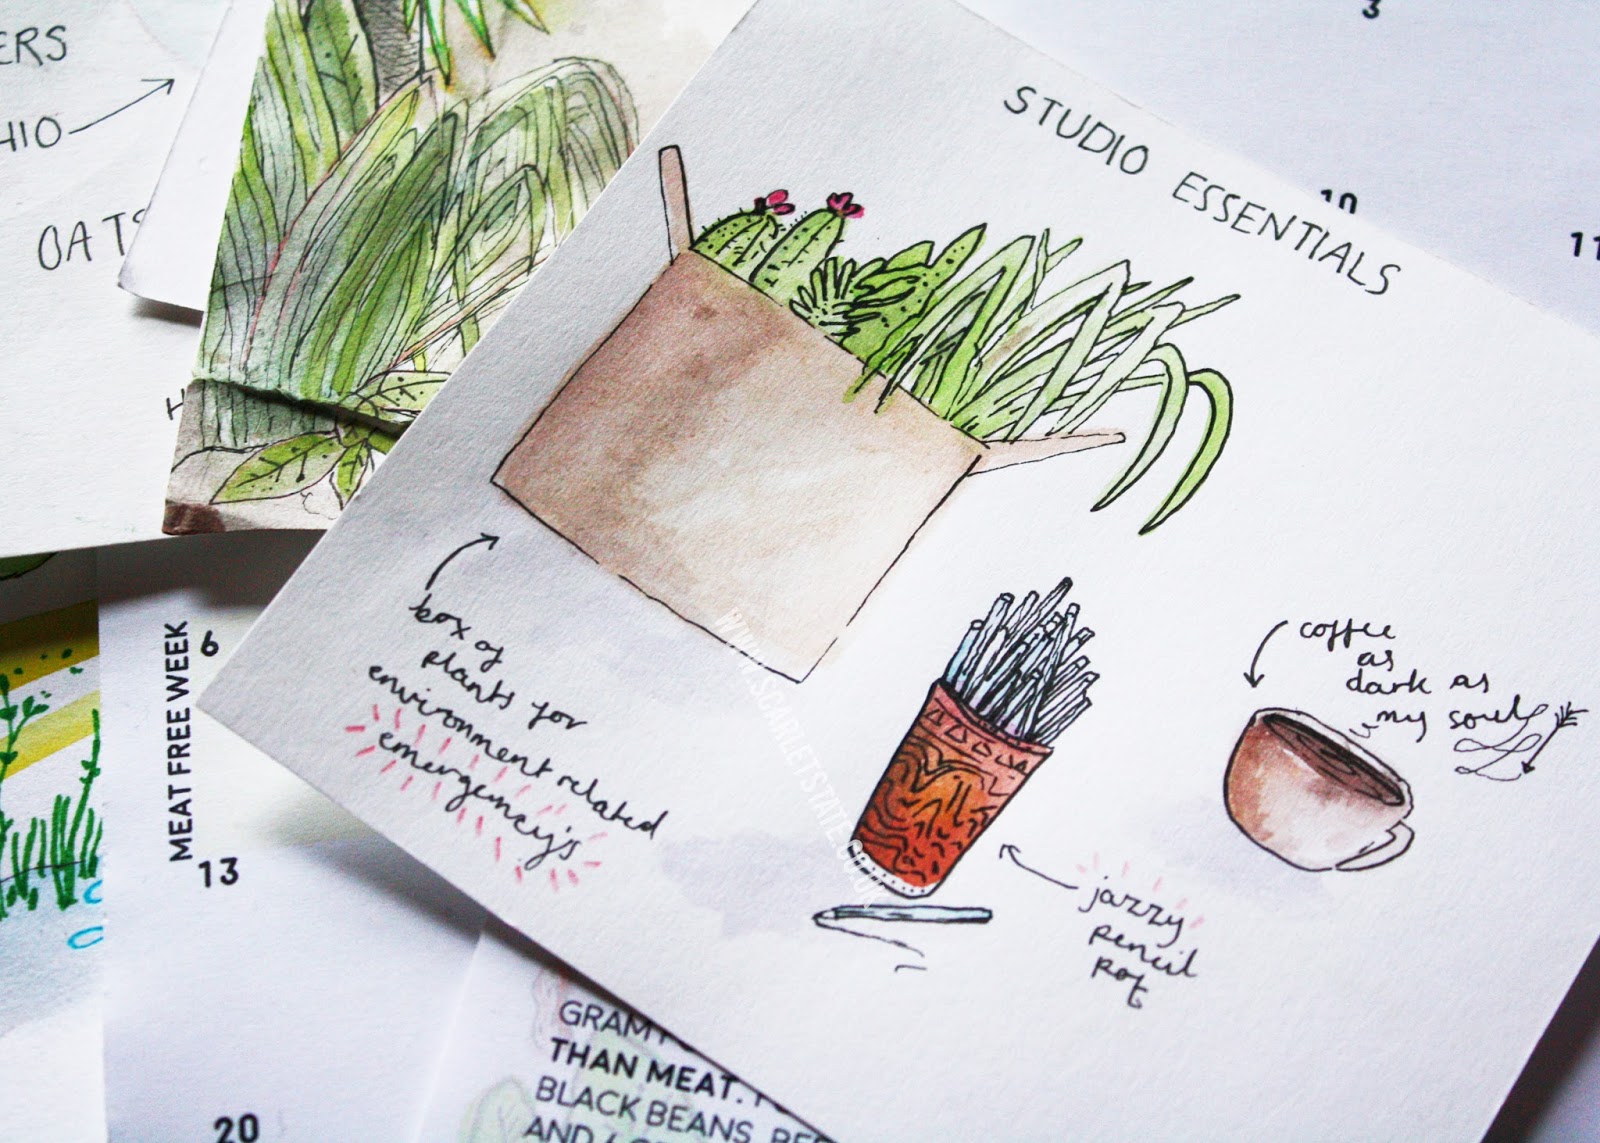 STUDIO ESSENTIALS
box of
plants for
environment related
emergency's
jazzy
pencil
pot
coffee
as
dark as
my soul
WWW.SCARLETSTATE.CO.UK
OATS
3
10
11
MEAT FREE WEEK
6
13
20
THAN MEAT.
BLACK BEANS,
AND